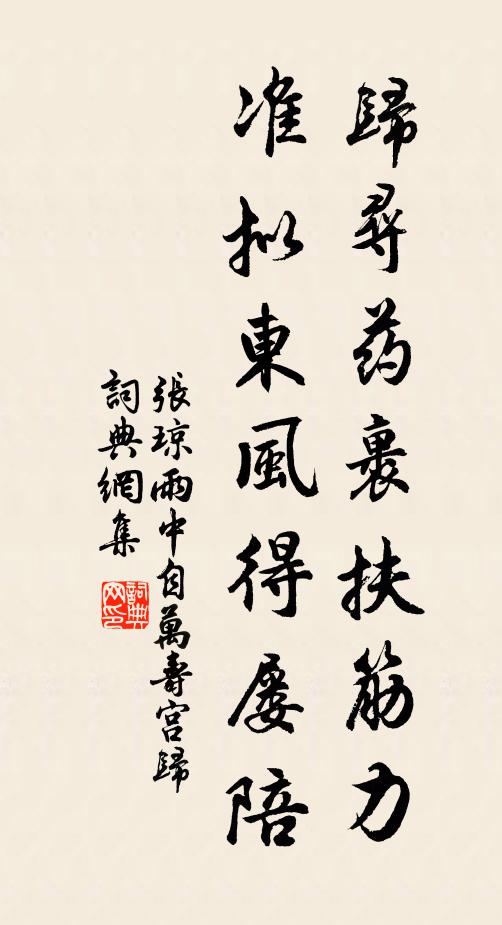 歸尋药裹扶筋力
准拟東風得屡陪
張琼雨中自萬壽宫歸
詞典網集
詞典网印